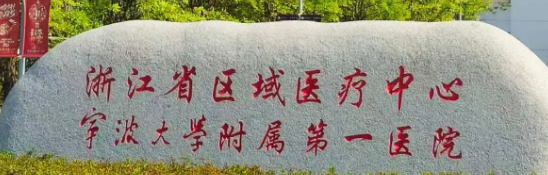 浙江省区域医疗中心
宁波大学附属第一医院